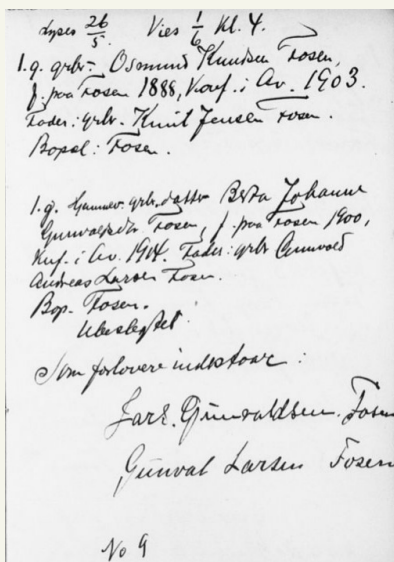 Lyses 26/5. Vies 1/6 Kl. 4.
1. g. grbr. Osmund Knudsen Fosen,
f. paa Fosen 1888, Konf. i Av. 1903.
Fader: grbr. Knut Jensen Fosen.
Bopæl: Fosen.
1. g. grbr. datter Berta Johanne
Gunvaldsdtr. Fosen, f. paa Fosen 1900,
Knf. i Av. 1914. Fader: grbr Gunvald
Andreas Larsen Fosen.
Bop. Fosen.
Ubeslegtet.
Som forlovere indestaar:
Gunvaldsen. Fosen
Gunval Larsen Fosen
No 9